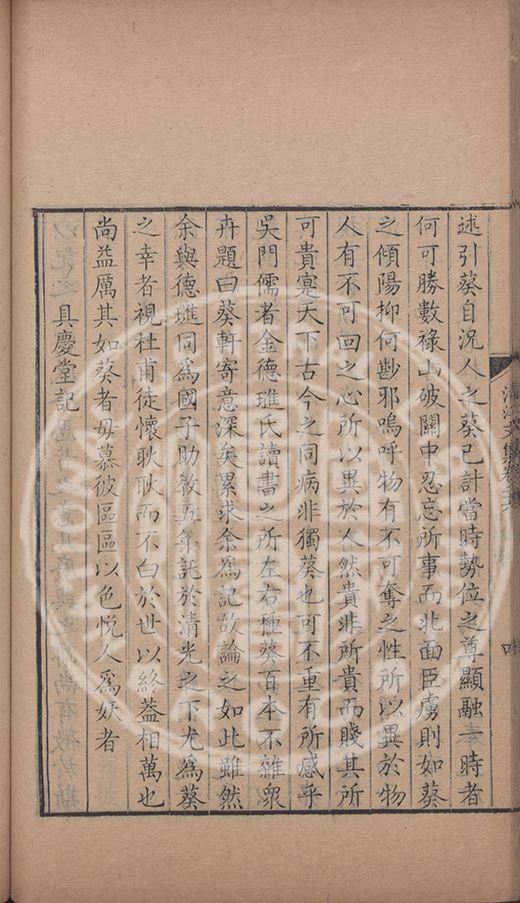 述引葵自況人之葵已計當時勢位之尊顯融一時者
何可勝數祿山破關中忍忘所事而北面臣虜則如葵
之傾陽抑何尠邪嗚呼物有不可奪之性所以異於物
人有不可回之心所以異於人然貴非所貴而賤其所
可貴寔天下古今之同病非獨葵也可不重有所感乎
吳門儒者金德璡氏讀書之所左右種葵百本不雜衆
卉題曰葵軒寄意深矣累求余爲記故論之如此雖然
余與德璡同爲國子助敎五年託於清光之下尤爲葵
之幸者視杜甫徒懷耿耿而不白於世以終葢相萬也
尚益厲其如葵者毋慕彼區區以色悅人爲妖者
具慶堂記